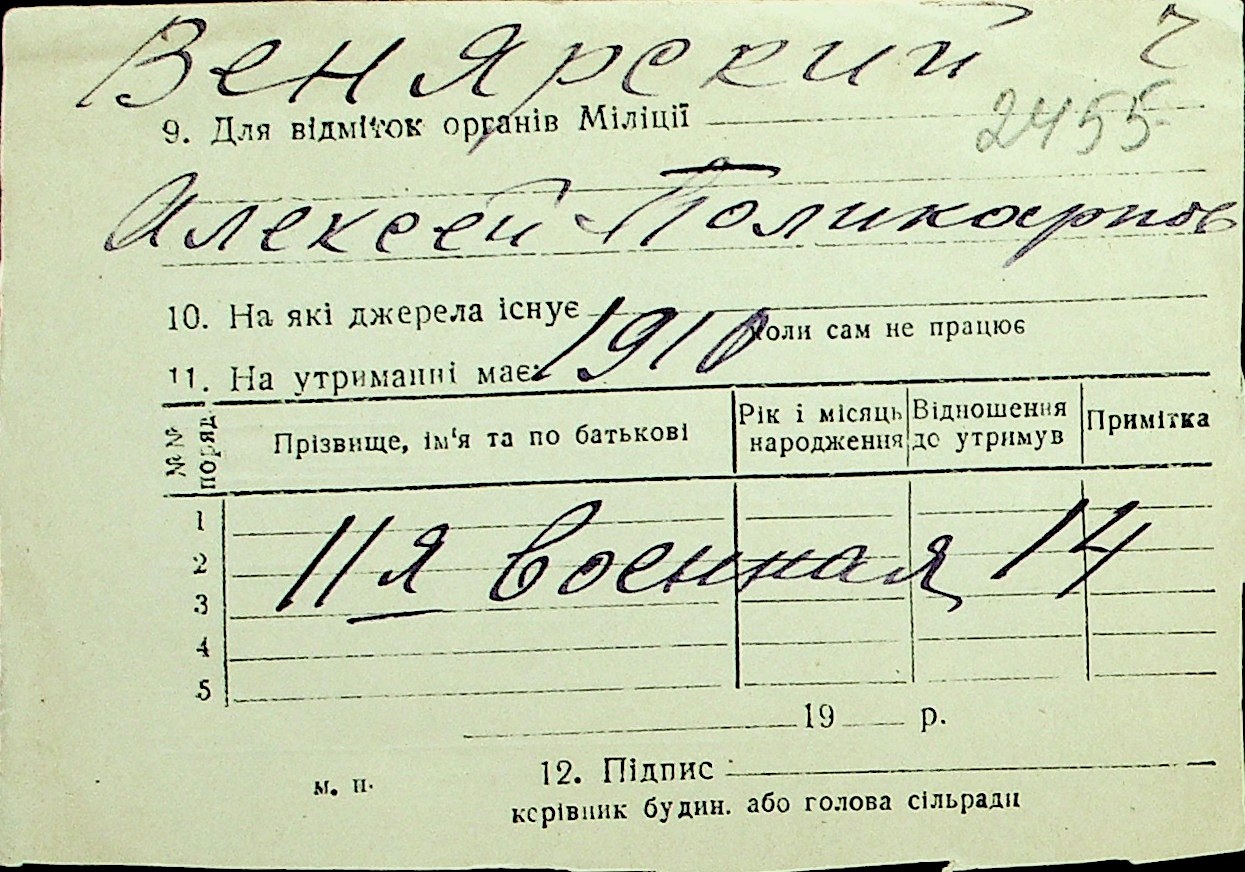 Венярский ч
9. Для відміток органів Міліції
2455
Алексей Поликарпов
10. На які джерела існує
1910 коли сам не працює
11. На утриманні має:
№№ поряд.
Прізвище, ім'я та по батькові
Рік і місяць народження
Відношення до утримув
Примітка
1
11я военная 14
2
3
4
5
19 р.
м. п.
12. Підпис
керівник будин. або голова сільради